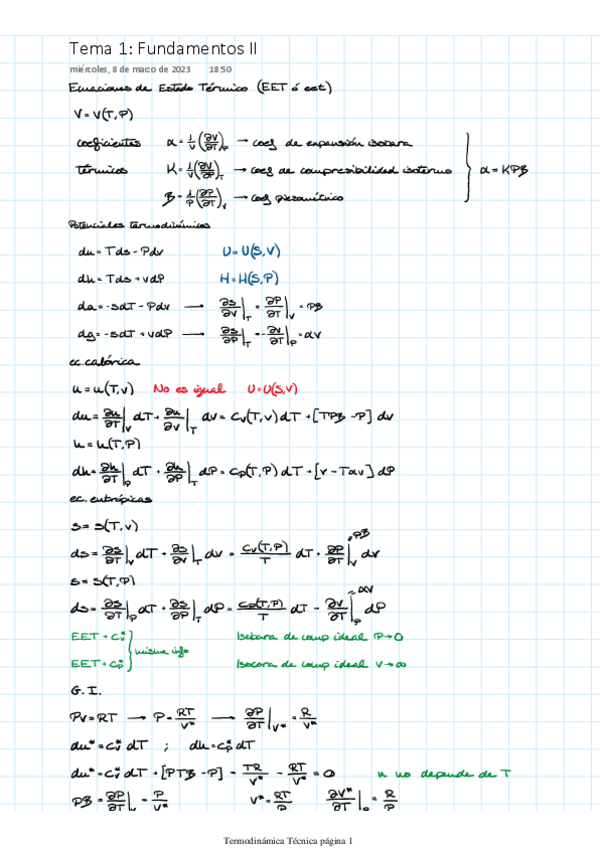 Tema 1: Fundamentos II
miércoles, 8 de marzo de 2023 18:50
Ecuaciones de Estado Térmico (EET ó eet)
V = V(T,P)
coeficientes α = 1/V (∂V/∂T)_P → coef de expansión isobara
térmicos K = 1/V (∂V/∂P)_T → coef de compresibilidad isotermo } α = KPB
B = 1/P (∂P/∂T)_V → coef piezométrico
Potenciales termodinámicos
du = Tds - Pdv U = U(S,V)
dh = Tds + vdP H = H(S,P)
da = -sdT - Pdv → ∂s/∂v|_T = ∂P/∂T|_V = PB
dg = -sdT + vdP → ∂s/∂P|_T = -∂v/∂T|_P = αv
ec. calórica
u = u(T,v) No es igual U=U(S,V)
du = ∂u/∂T|_V dT + ∂u/∂v|_T dv = Cv(T,v)dT + [TPB - P] dv
h = h(T,P)
dh = ∂h/∂T|_P dT + ∂h/∂P|_T dP = Cp(T,P)dT + [v - Tαv] dP
ec. entrópicas
s = s(T,v)
ds = ∂s/∂T|_V dT + ∂s/∂v|_T dv = Cv(T,P)/T dT + ∂P/∂T|_V dv PB
s = s(T,P)
ds = ∂s/∂T|_P dT + ∂s/∂P|_T dP = Cp(T,P)/T dT - ∂v/∂T|_P dP = αv
EET + Cv* } Isobara de comp ideal P→0
misma info
EET + Cp* } Isocora de comp ideal V→∞
G.I.
Pv = RT → P = RT/v* → ∂P/∂T|_v* = R/v*
du* = Cv* dT ; dh = Cp* dT
du* = Cv* dT + [PTB - P] = TR/v* - RT/v* = 0 u no depende de T
PB = ∂P/∂T|_v = P/v* v* = RT/P ∂v*/∂T|_P = R/P
Termodinámica Técnica página 1